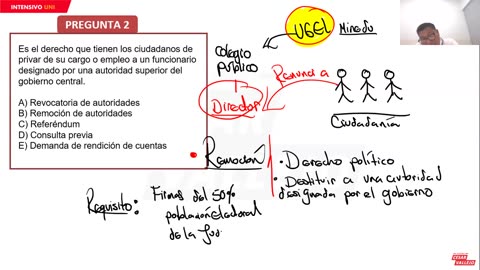 INTENSIVO UNI
PREGUNTA 2
Es el derecho que tienen los ciudadanos de
privar de su cargo o empleo a un funcionario
designado por una autoridad superior del
gobierno central.
A) Revocatoria de autoridades
B) Remoción de autoridades
C) Referéndum
D) Consulta previa
E) Demanda de rendición de cuentas
UGEL
Minedu
Colegio
público
Director
Renuncia
Ciudadanía
• Remoción
• Derecho político
• Destituir a una autoridad
designada por el gobierno
Requisito:
Firmas del 50%
población electoral
de la
CÉSAR
VALLEJO